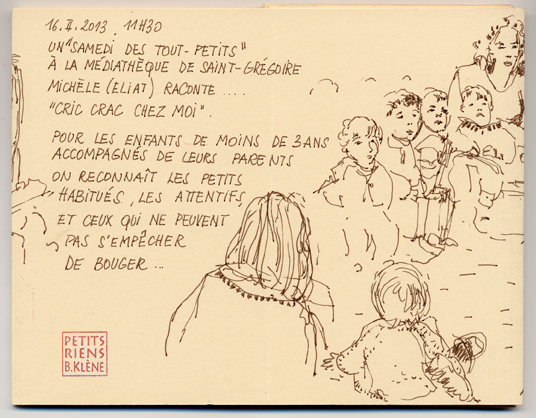 16.II.2013 11H30
UN "SAMEDI DES TOUT-PETITS"
À LA MÉDIATHÈQUE DE SAINT-GRÉGOIRE
MICHÈLE (ELIAT) RACONTE ....
"CRIC CRAC CHEZ MOI".
POUR LES ENFANTS DE MOINS DE 3 ANS
ACCOMPAGNÉS DE LEURS PARENTS
ON RECONNAÎT LES PETITS
HABITUÉS, LES ATTENTIFS
ET CEUX QUI NE PEUVENT
PAS S'EMPÊCHER
DE BOUGER ...
PETITS
RIENS
B.KLÈNE